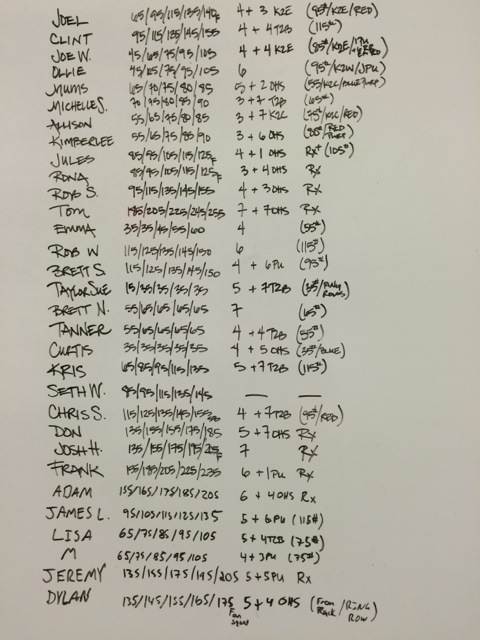 JOEL 65/95/115/135/140F 4 + 3 K2E (95#/K2E/RED)
CLINT 95/115/125/145/155 4 + 4 T2B (115#)
JOE W. 45/65/75/95/105 4 + 4 K2E
OLLIE 45/65/75/95/105 6 (95#/K2W/JPU)
MUMS 65/70/75/80/85 5 + 2 OHS
MICHELLE S. 70/75/80/85/90 3 + 7 T2B (65#)
ALLISON 55/65/75/80/85 3 + 7 K2E
KIMBERLEE 55/65/75/85/90 3 + 6 OHS
JULES 85/95/105/115/125F 4 + 1 OHS Rx+ (105#)
RONA 85/95/105/115/125F 3 + 4 OHS Rx
ROB S. 95/115/135/145/155 4 + 3 OHS Rx
TOM 185/205/225/245/255 7 + 7 OHS Rx
EMMA 35/35/45/55/60 4 (55#)
ROB W 115/125/135/145/150 6 (115#)
BRETT S. 115/125/135/145/150 4 + 6 PU (95#)
TAYLOR SUE 15/35/35/35/35 5 + 7 T2B (35#/RING ROWS)
BRETT N. 55/65/65/65/65 7 (65#)
TANNER 55/65/65/65/65 4 + 4 T2B (55#)
CURTIS 35/35/35/35/35 4 + 5 OHS (35#/BLUE)
KRIS 65/85/95/115/135 5 + 7 T2B (115#)
SETH W. 85/95/115/135/145 — —
CHRIS S. 115/125/135/145/155 4 + 7 T2B (95#/RED)
DON 135/155/155/175/185 5 + 7 OHS Rx
JOSH H. 135/155/175/195/205F 7 Rx
FRANK 155/185/205/225/235 6 + 1 PU Rx
ADAM 155/165/175/185/205 6 + 4 OHS Rx
JAMES L. 95/105/115/125/135 5 + 6 PU (115#)
LISA 65/75/85/95/105 5 + 4 T2B (75#)
M 65/75/85/95/105 4 + 3 PU (75#)
JEREMY 135/155/175/195/205 5 + 5 PU Rx
DYLAN 135/145/155/165/175 5 + 4 OHS (From Rack/RING ROW)